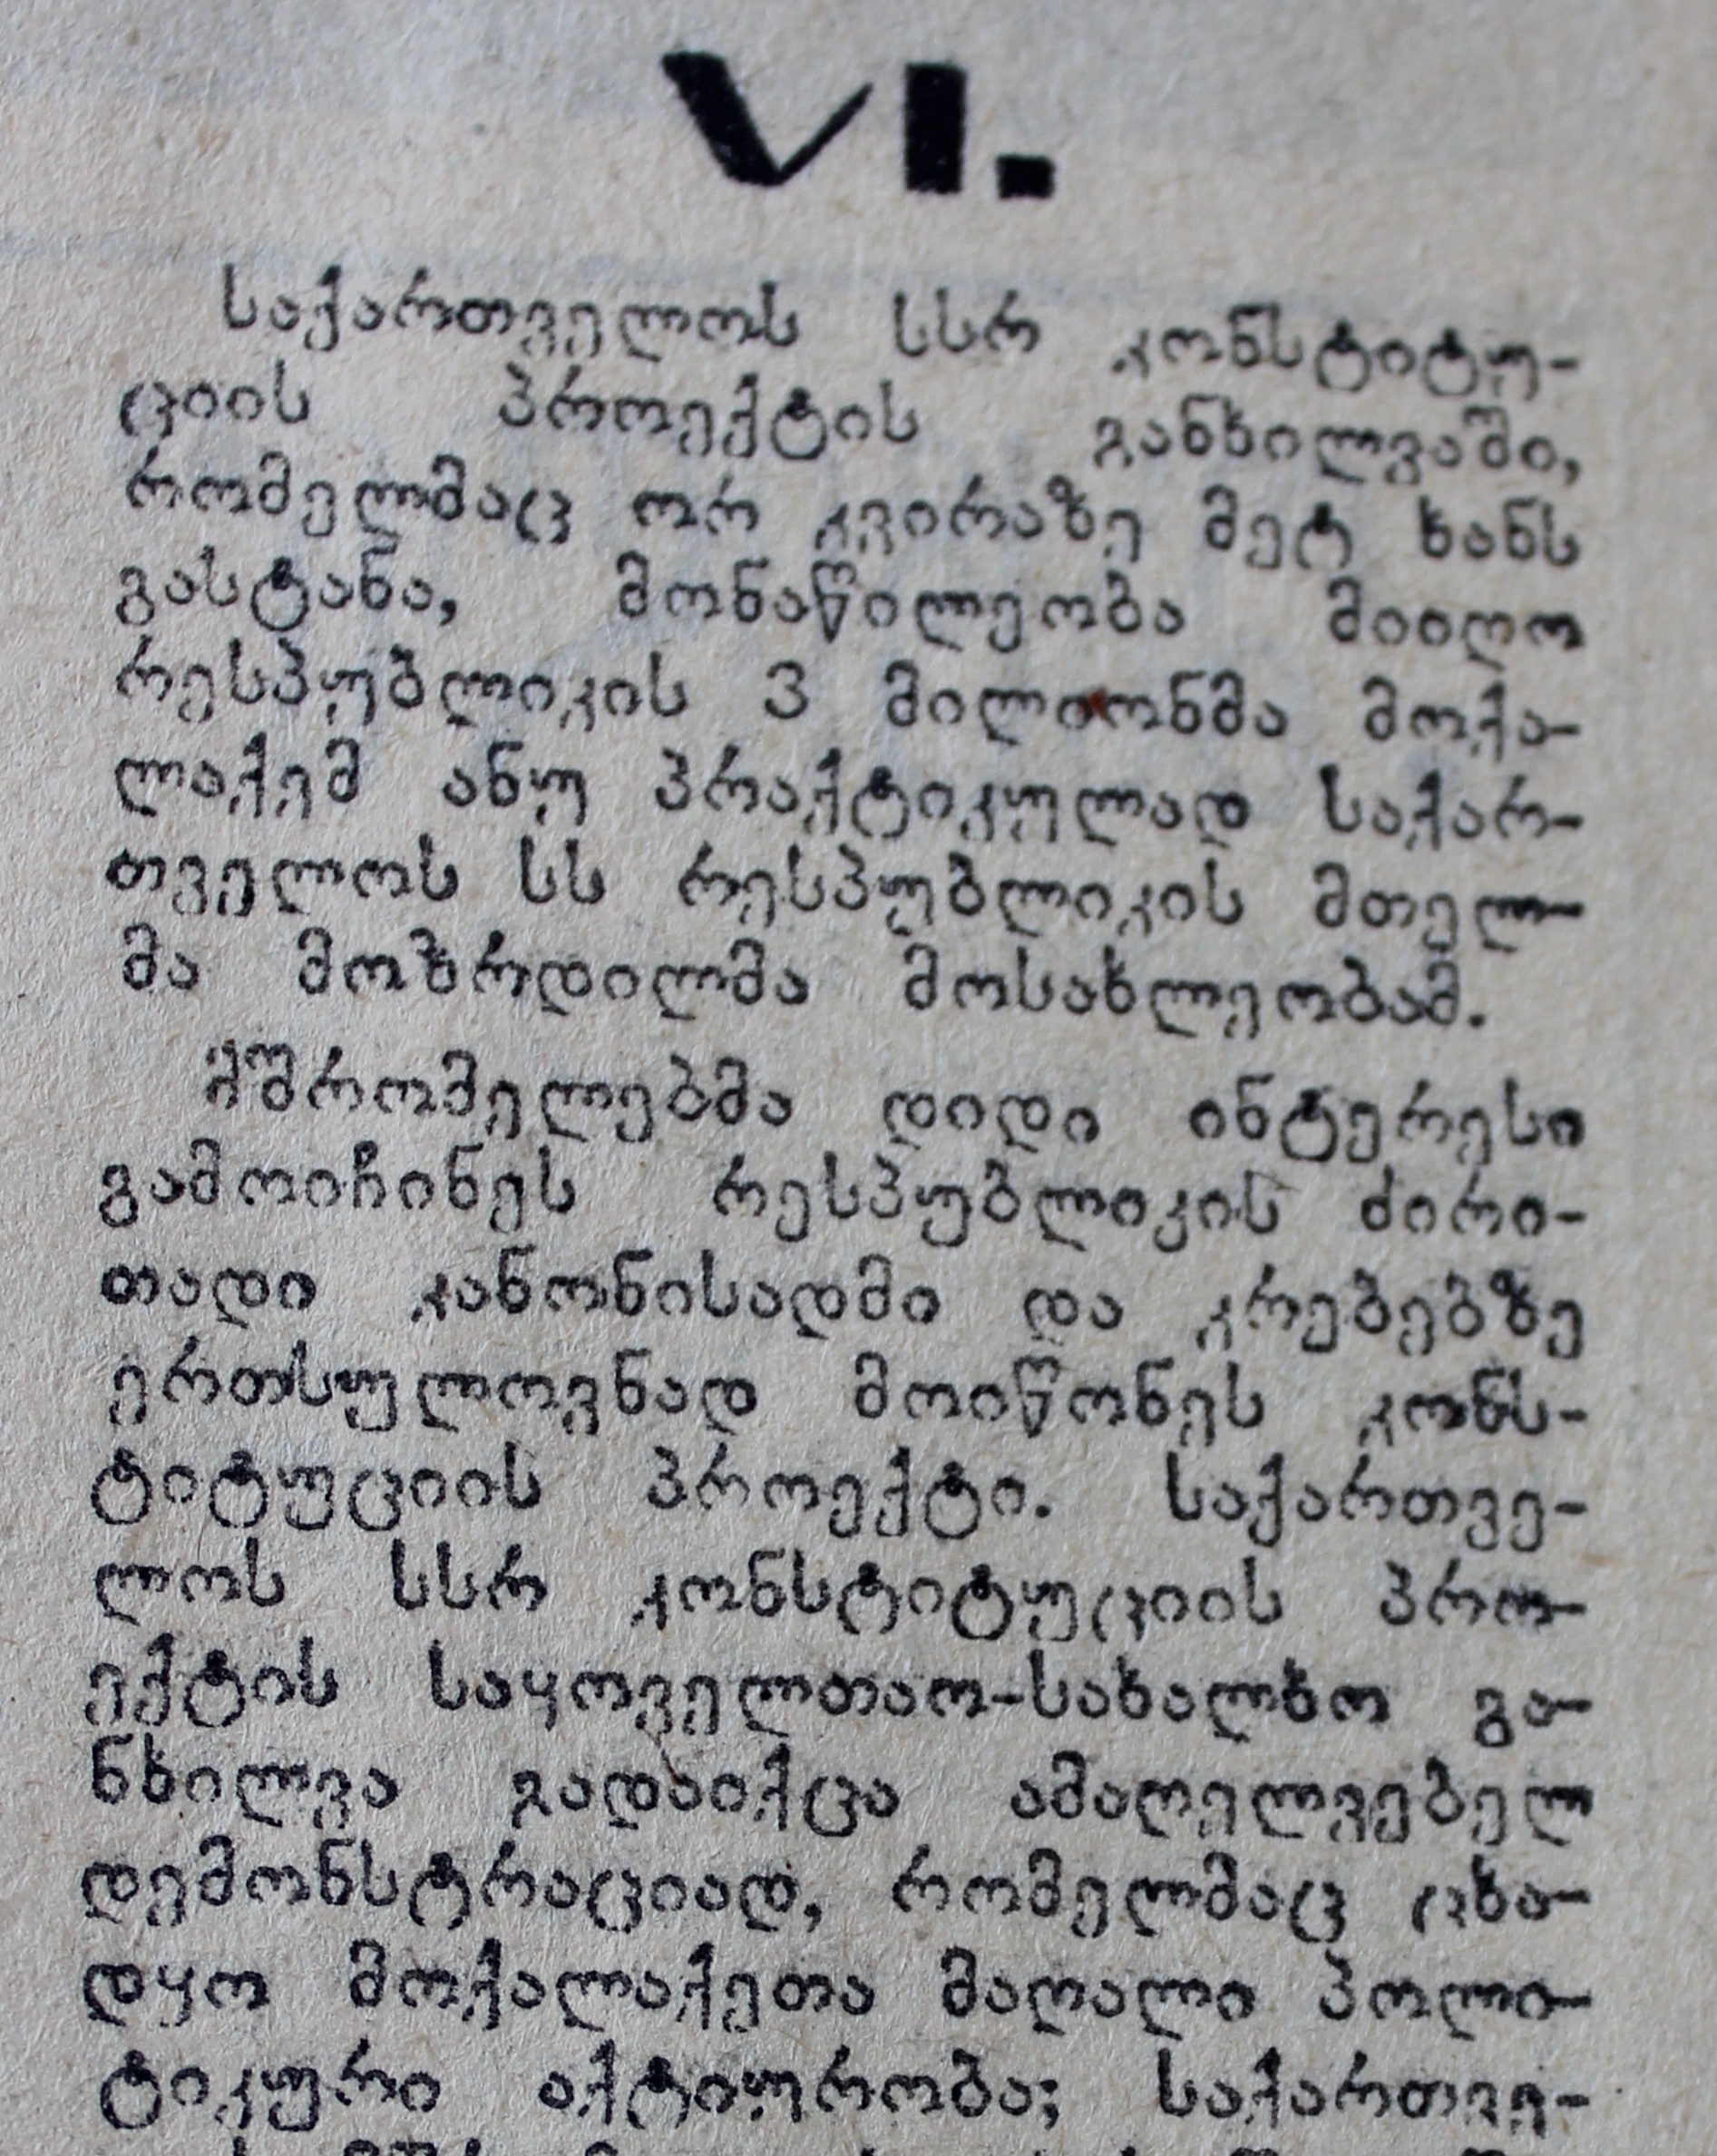 VI.
საქართველოს სსრ კონსტიტუ-
ციის პროექტის განხილვაში,
რომელმაც ორ კვირაზე მეტ ხანს
გასტანა, მონაწილეობა მიიღო
რესპუბლიკის 3 მილიონმა მოქა-
ლაქემ ანუ პრაქტიკულად საქარ-
თველოს სს რესპუბლიკის მთელ-
მა მოზრდილმა მოსახლეობამ.
მშრომელებმა დიდი ინტერესი
გამოიჩინეს რესპუბლიკის ძირი-
თადი კანონისადმი და კრებებზე
ერთსულოვნად მოიწონეს კონს-
ტიტუციის პროექტი. საქართვე-
ლოს სსრ კონსტიტუციის პრო-
ექტის საყოველთაო-სახალხო გა-
ნხილვა გადაიქცა ამაღელვებელ
დემონსტრაციად, რომელმაც ცხა-
დყო მოქალაქეთა მაღალი პოლი-
ტიკური აქტიურობა; საქართვე-